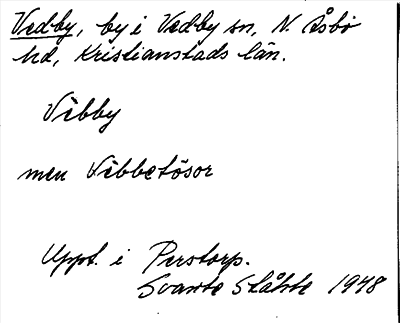 Vedby, by i Vedby sn, N. Åsbo
hd, Kristianstads län.
Vèbby
men Vèbbetösor
Uppt. i Perstorp.
Svante Ståhle 1948